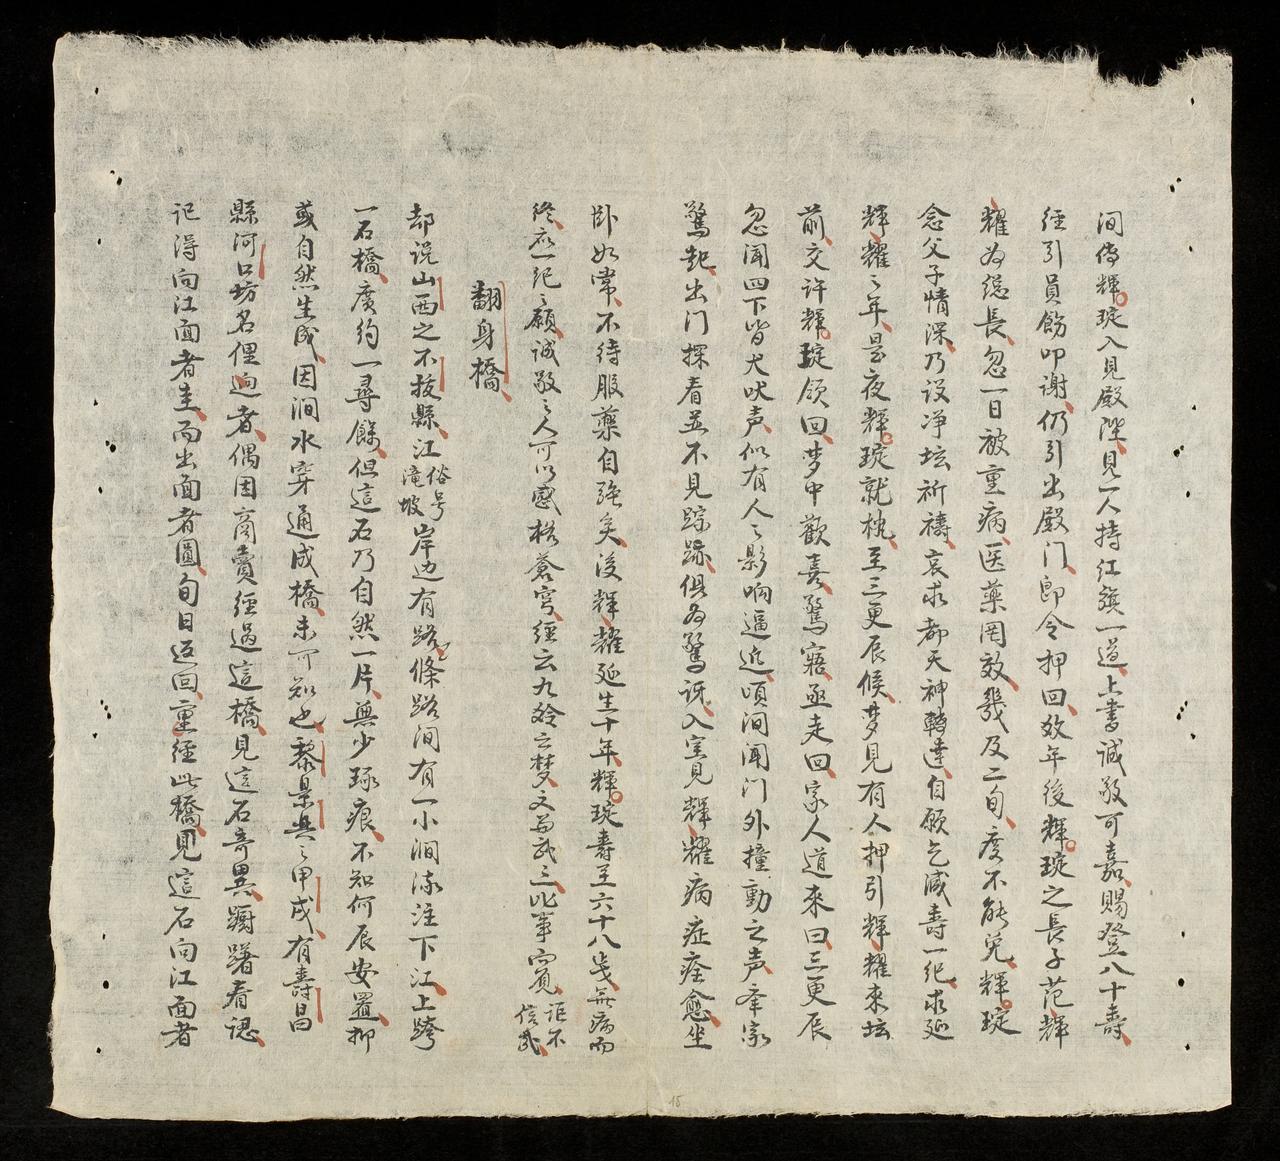 间傳輝琔入見殿陛見一人持紅旗一道上書誠敬可嘉賜登八十壽
徑引員飭叩謝仍引出殿门即令押回效年後輝琔之長子范輝
耀为總長忽一日被重病医藥罔效幾及二旬度不能免輝琔
念父子情深乃设净坛祈禱哀求都天神轉達自願乞减壽一紀求延
輝耀之年是夜輝琔就枕至三更辰候梦見有人押引輝耀來坛
前交许輝琔領回梦中歡喜驚寤亟走回家人道來曰三更辰
忽闻四下皆犬吠声似有人之影响逼近頃间闻门外撞動之声牽家
驚起出门探看並不見踪跡俱为驚讶入室見輝耀病症痊愈坐
卧如常不待服藥自強矣後輝耀延生十年輝琔壽至六十八歲無病而
終应一紀之願誠敬之人可以感格蒼穹經云九齡之梦文为武三此事實詎不信哉
翻身橋
却说山西之不拔縣江俗号滝坡岸边有路條路间有一小澗流注下江上跨
一石橋廣约一尋餘但這石乃自然一片無少琢痕不知何辰安置抑
或自然生成因澗水穿通成橋未可知也黎景興之甲戌有壽昌
縣河口坊名俚迪者偶因商賣經過這橋見這石奇異躕躇看認
记得向江面者圭而出面者圓旬日返回重經此橋見這石向江面者